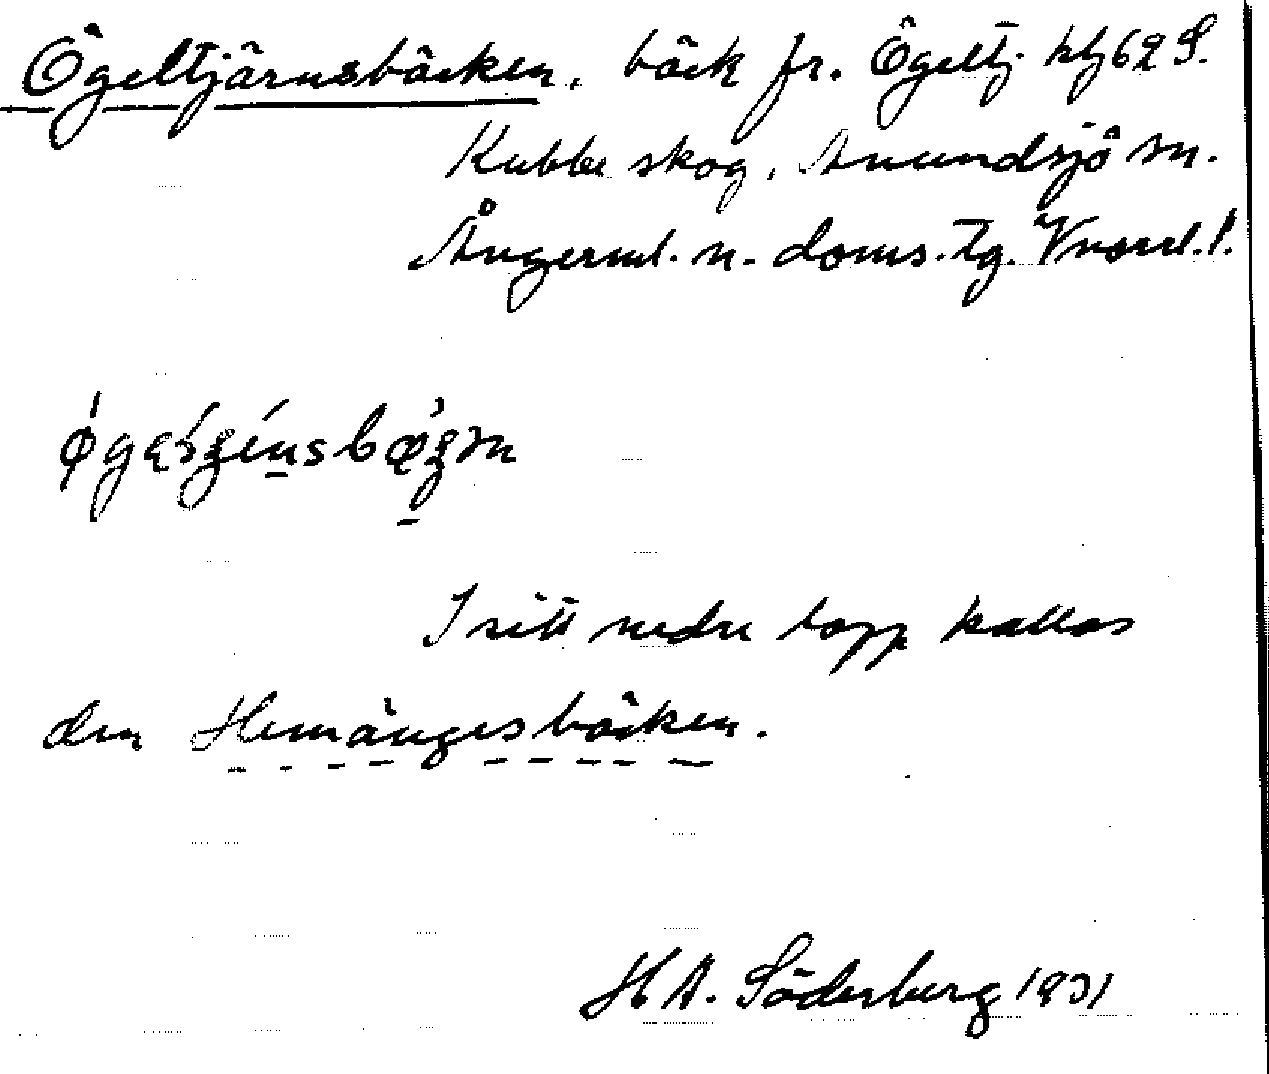 Ögeltjärnsbäcken, bäck fr. Ögeltj. kbl 62 S.
Kubbe skog, Anundsjö sn.
Ångerml. n. doms. tg. Vnorrl. l.
I sitt nedre lopp kallas
den Hemängesbäcken.
H A. Söderberg 1931